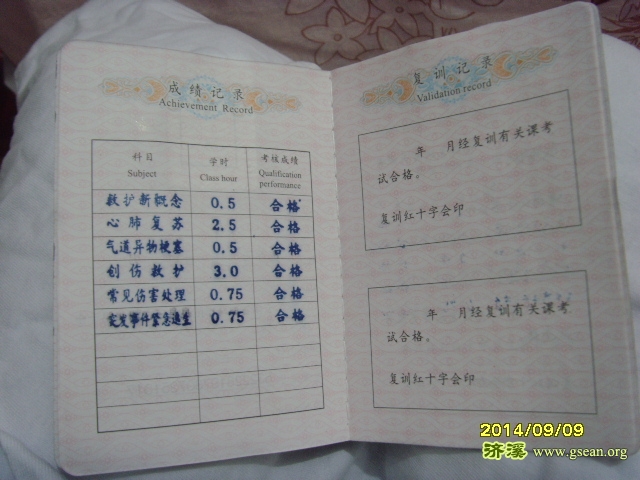 成绩记录
Achievement Record
科目 学时 考核成绩
Subject Class hour Qualification performance
救护新概念 0.5 合格
心肺复苏 2.5 合格
气道异物梗塞 0.5 合格
创伤救护 3.0 合格
常见伤害处理 0.75 合格
突发事件紧急逃生 0.75 合格
复训记录
Validation record
年 月经复训有关课考
试合格。
复训红十字会印
年 月经复训有关课考
试合格。
复训红十字会印
2014/09/09
济溪 www.gsean.org